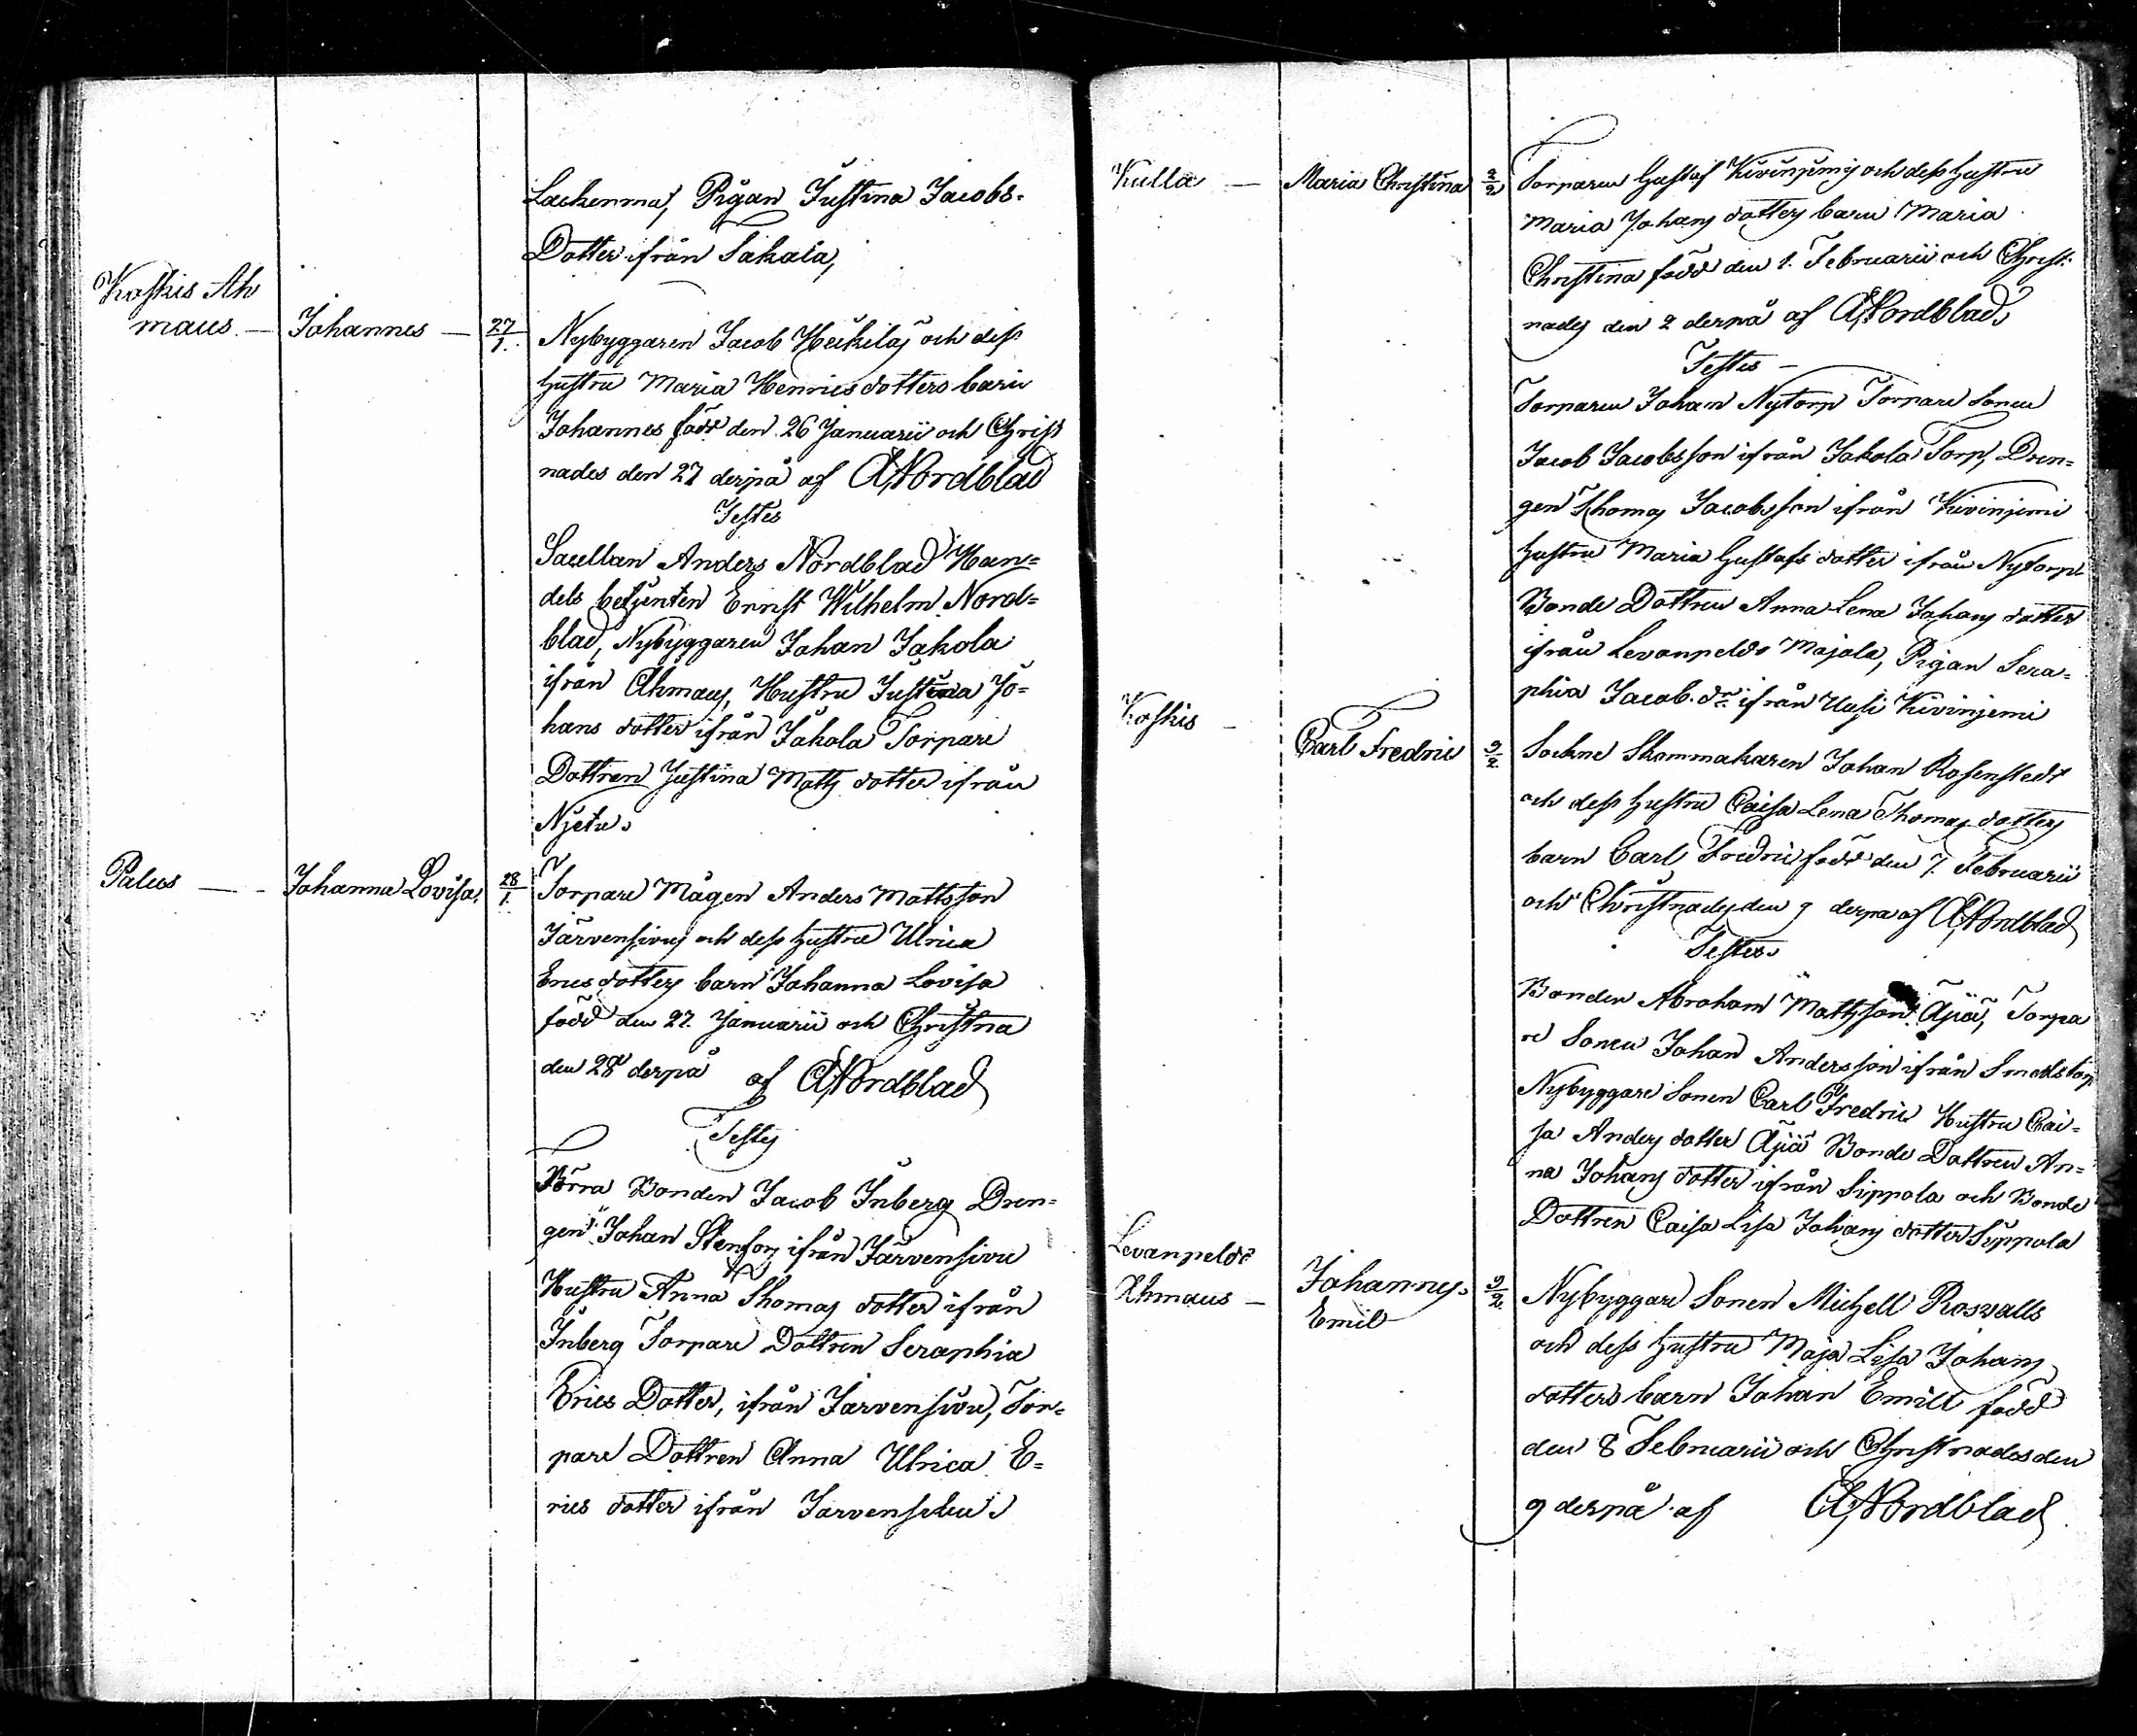 Lackenmaj, Pigan Justina Jacobs-
Dotter ifrån Sakala,
Koskis Ah
maus. — Johannes — 27/1. Nybyggaren Jacob Heikilaj och dess
hustru Maria Henricsdotters barn
Johannes född den 26 Januarii och Christ
nades den 27 derpå af A Nordblad
Testes
Sacellan Anders Nordblad Han=
dels betjenten Ernst Wilhelm Nord=
blad, Nybyggaren Johan Jakola
ifrån Ahmaus, Hustru Justina Jo=
hans dotter ifrån Jakola Torpare
Dottren Justina Matts dotter ifrån
Palus — Johanna Lovisa, 28/1. Torpare Mågen Anders Mattsson
Järvensivus och dess hustru Ulrica
Erics dotters barn Johanna Lovisa
född den 27. Januarii och Christna
den 28 derpå af A Nordblad
Testes
Förra Bonden Jacob Inberg Dren-
gen Johan Stenfors ifrån Järvensivu
Hustru Anna Thomas dotter ifrån
Inberg Torpare Dottren Seraphia
Erics Dotter, ifrån Järvensivu, Tor=
pare Dottren Anna Ulrica E=
rics dotter ifrån
Kulla — Maria Christina 2/2 Torparen Gustaf Kivinjemis och dess hustru
Maria Johans dotters barn Maria
Christina född den 1. Februarii och Christ-
nades den 2 derpå af A Nordblad
Testes —
Torparen Johan Nytorp Torpare Sonen
Jacob Jacobsson ifrån Jakola Torp, Dren=
gen Thomas Jacobsson ifrån Kivinjemi
hustru Maria Gustafs dotter ifrån Nytorp
Bonde Dottren Anna Lena Johans dotter
ifrån Levanpeldo Majala, Pigan Sera=
phia Jacob. dr ifrån Uusi Kivinjemi
Koskis — Carl Fredric 9/2 Sockne Skommakaren Johan Rosenstedt
och dess hustru Caisa Lena Thomas dotters
barn Carl Fredric född den 7. Februarii
och Christnades den 9 derpå af A Nordblad
Testes
Bonden Abraham Mattsson Äjä, Torpa
re Sonen Johan Andersson ifrån Smedstorp
Nybyggare Sonen Carl Fredric Hustru Cai=
sa Anders dotter Äjä Bonde Dottren An=
na Johans dotter ifrån Sippola och Bonde
Dottren Caisa Lisa Johans dotter Sippola
Levanpeldo
Ahmaus — Johannes 9/2. Nybyggare Sonen Michell Rosvalls
Emil och dess hustru Maja Lisa Johans
dotters barn Johan Emill född
den 8 Februarii och Christnades den
9 derpå af A Nordblad